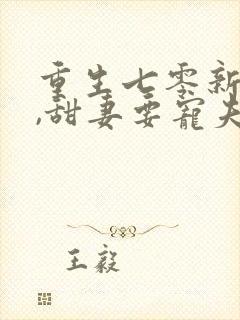 重生七零新
,甜妻要宠夫
王毅